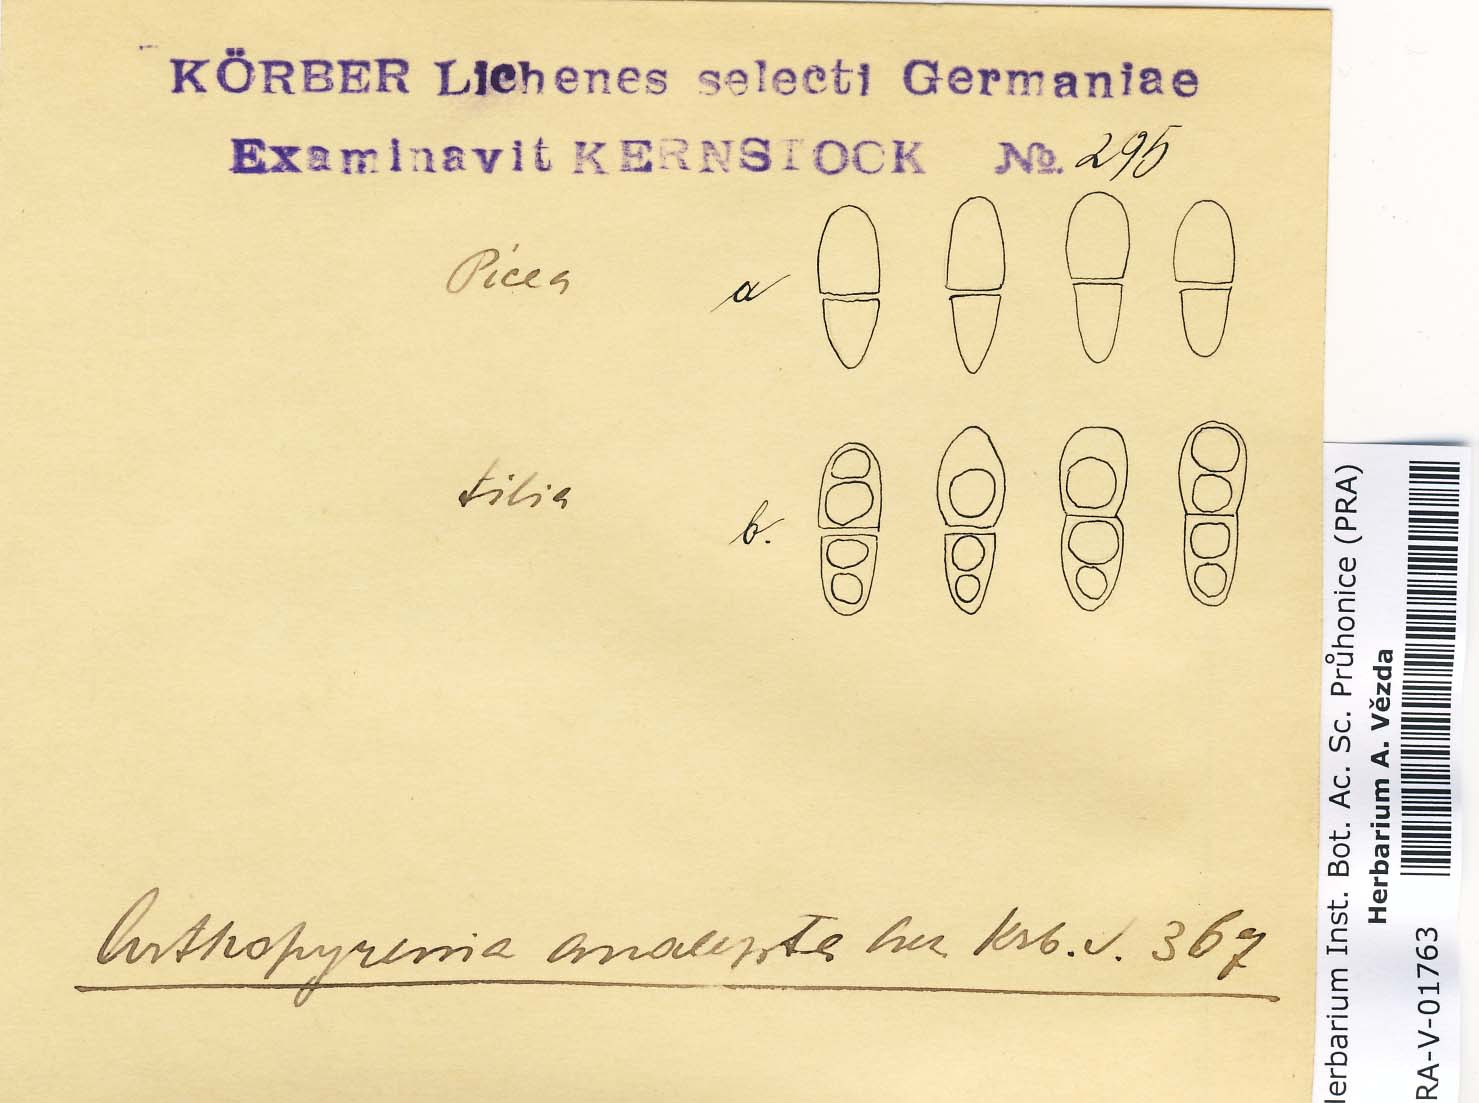 KÖRBER Lichenes selecti Germaniae
Examinavit KERNSTOCK No. 295
Picea
a
tilia
b.
Arthopyrenia analepta Krb. 367
Herbarium Inst. Bot. Ac. Sc. Průhonice (PRA)
Herbarium A. Vězda
RA-V-01763